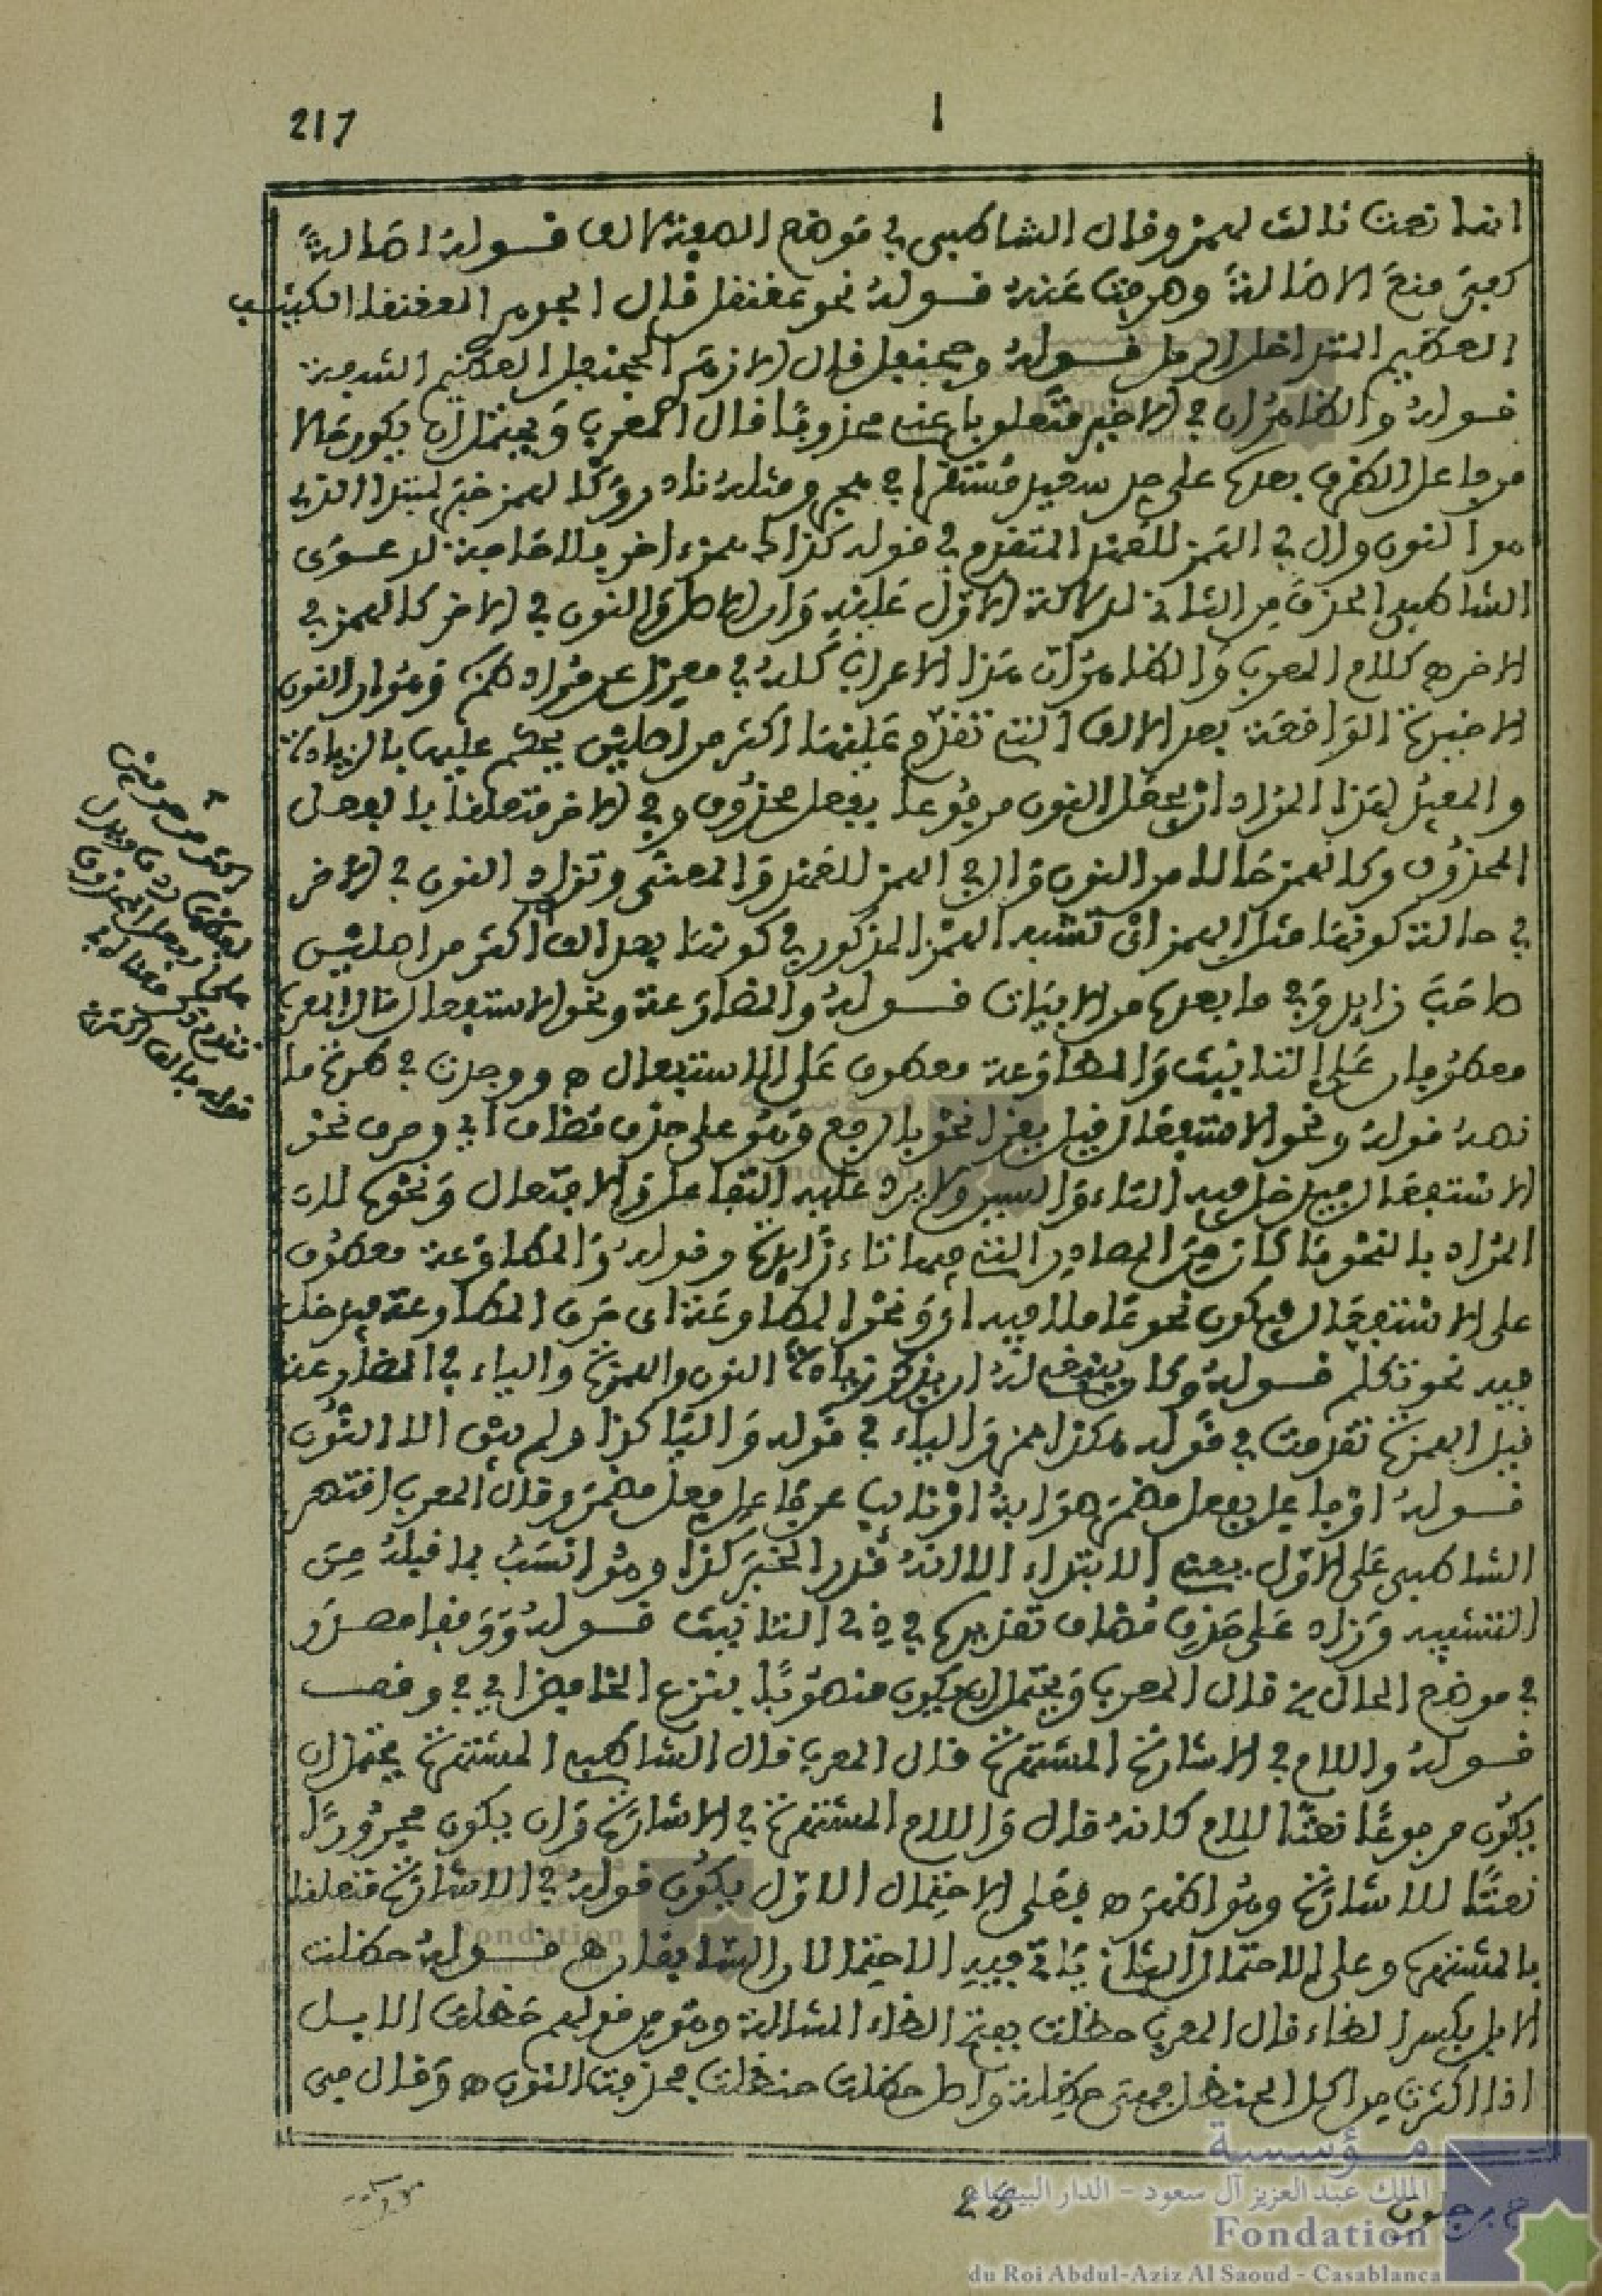 217
1
انها نعت ثالث لهمز وقال الشاطبي في موضع الصفة لألف قوله اصالة
العظيم المتداخل الرمل قوله وجحنفل قال الازهري الجحنفل العظيم الشفة
قوله والظاهران في الاخر متعلق باعني محذوفا قال المعرب ويحتمل ان يكون حالا
من فاعل الظرف بعدها على حد سعيد مستقرا في هجر ومثله نادر وكالهمز خبر لمبتدا الذي
هو النون وال في الهمز للعهد المتقدم في قوله كذا همز اخر فلا حاجة لدعوى
الشاطبي الحذف من الثاني لدلالة الاول عليه وان الاصل والنون في الاخر كالهمز في
الاخر ه كلام المعرب والظاهر ان هذا الاعراب كله في معزل عن مراد الناظم وهو ان النون
الاخيرة الواقعة بعد الالف التي تقدم عليها اكثر من اصلين يحكم عليها بالزيادة
والمفيد لهذا المراد ان يجعل النون مرفوعا بفعل محذوف وفي الاخر متعلقا بالفعل
المحذوف وكالهمز حالا من النون وال في الهمز للعهد والمعنى وتزاد النون في الاخر
في حالة كونها مثل الهمز اي تشبه الهمز المذكور في كونها بعد الف اكثر من اصلين
صاحب زايد وفي ما بعدها من الابيات قوله والمضارعة ونحو الاستفعال قال المعرب
معطوفان على التانيث والمطاوعة معطوف على الاستفعال ه ووجدت في طرة ما
نصه قوله ونحو الاستفعال قيل يقرا نحو بالرفع وهو على حذف مضاف اي وحرف نحو
الاستفعال فيدخل فيه التاء والسين ولا يرد عليه التفاعل والافتعال ونحوها لان
المراد بالنحو ما كان من المصادر التي فيها تاء زايدة وقوله والمطاوعة معطوف
على الاستفعال فيكون نحو عاملا فيه اي ونحو المطاوعة اي حرف المطاوعة فيدخل
فيه نحو تكلم قوله وكان ينبغي له ان يذكر زيادة النون والهمزة والياء في المضارعة
قيل الهمزة تقدمت في قوله هكذا همز والياء في قوله واليا كذا ولم يبق الا النون
قوله او فاعل بفعل مضمر صوابه او نايب عن فاعل فعل مضمر وقال المعرب اقتصر
الشاطبي على الاول يعني الابتداء الا انه قدر الخبر كذا وهو انسب بما قبله من
التشبيه وزاد على حذف مضاف تقديره في ذي التانيث قوله ووقفا مصدر
في موضع الحال قال المعرب ويحتمل ان يكون منصوبا بنزع الخافض اي في وقف
قوله واللام في الاشارة المشتهرة قال المعرب قال الشاطبي المشتهرة يحتمل ان
يكون مرفوعا نعتا للام كانه قال واللام المشتهرة في الاشارة وان يكون مجرورا
نعتا للاشارة وهو اظهر ه فعلى الاحتمال الاول يكون قوله في الاشارة متعلقا
بالمشتهرة وعلى الاحتمال الثاني ياتي فيه الاحتمالان السابقان ه قوله حظلت
الابل بكسر الظاء قال المعرب حظلت بفتح الظاء المشالة وهو من قولهم حظلت الابل
اذا اكثرت من اكل الحنظل فهي حظلة واصل حظلت حنظلت فحذفت النون ه وقال في
اكثر من حرفين
28
مؤسسة
الملك عبد العزيز آل سعود - الدار البيضاء
Fondation
du Roi Abdul-Aziz Al Saoud - Casablanca